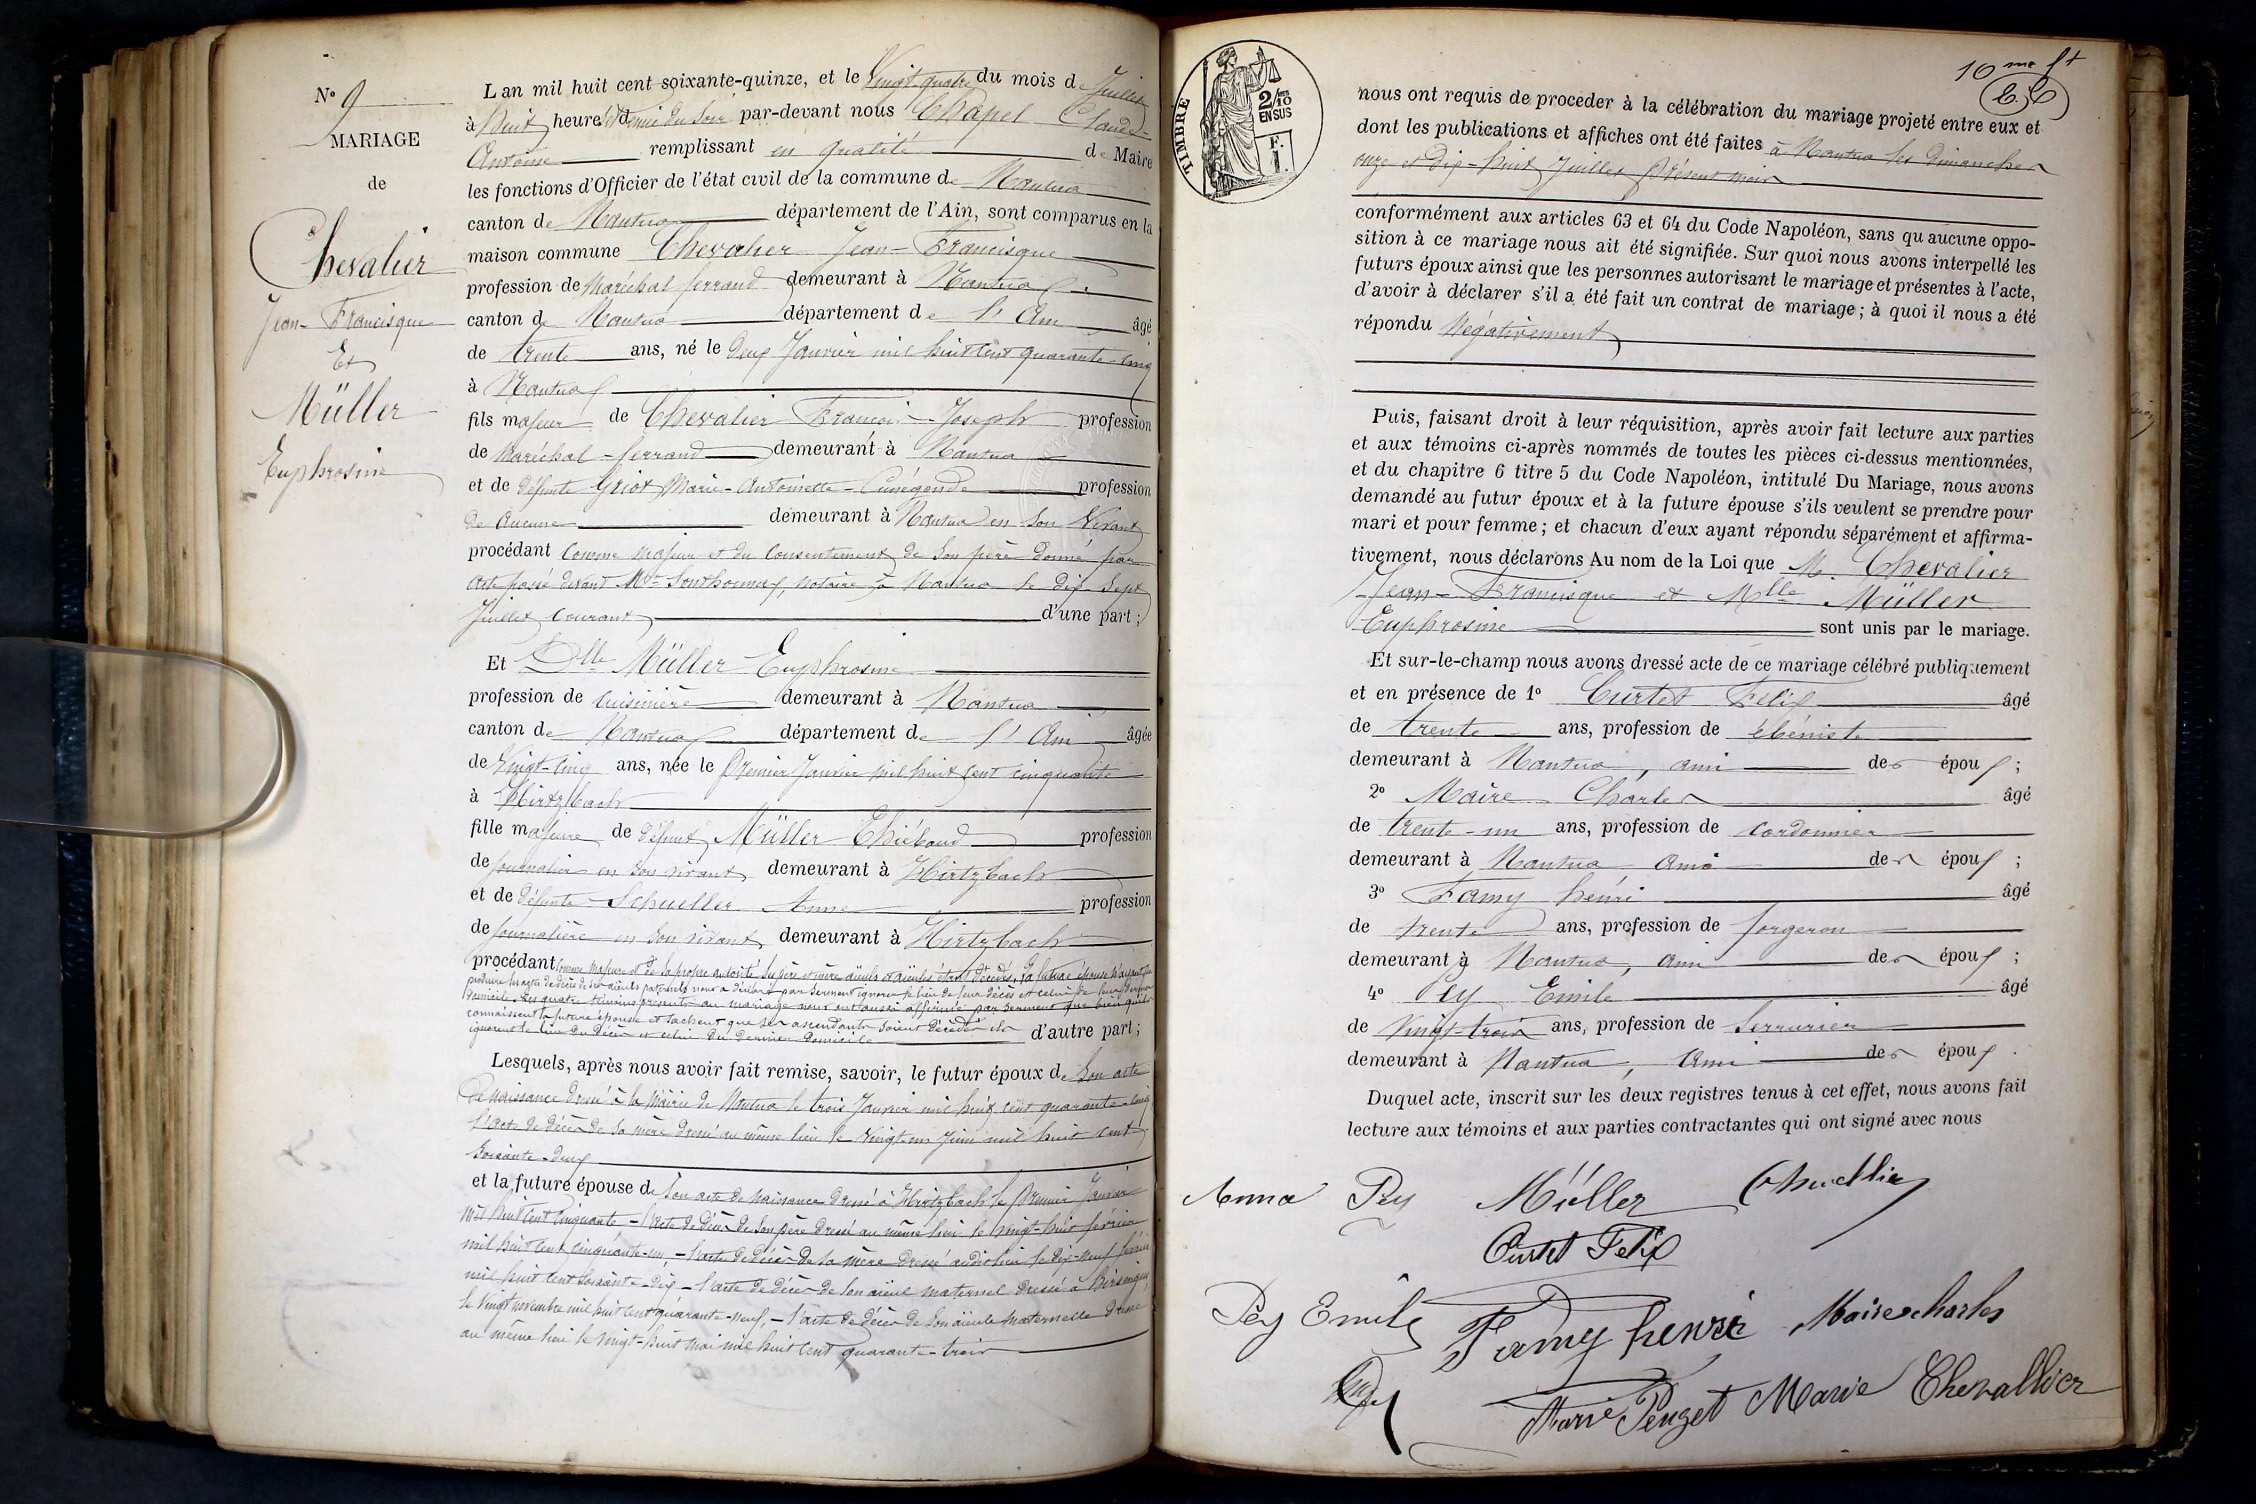 N° 9
MARIAGE
de
Chevalier
Jean-Francisque
Et
Müller
Euphrosine
L'an mil huit cent soixante-quinze, et le Vingt quatre du mois de Juillet
à huit heures et demie du soir par-devant nous Chapel Claude-
Antoine remplissant en qualité de Maire
les fonctions d'Officier de l'état civil de la commune de Nantua
canton de Nantua département de l'Ain, sont comparus en la
maison commune Chevalier Jean-Francisque
profession de Maréchal ferrand demeurant à Nantua
canton de Nantua département de l'Ain âgé
de trente ans, né le deux Janvier mil huit cent quarante-cinq
à Nantua
fils majeur de Chevalier François-Joseph profession
de Maréchal-ferrand demeurant à Nantua
et de défunte Griot Marie-Antoinette-Cunégonde profession
de aucune demeurant à Nantua en son vivant
procédant comme majeur et du consentement de son père donné par
acte passé devant Me Southonnax, notaire à Nantua le dix-sept
Juillet courant d'une part;
Et Dlle Müller Euphrosine
profession de cuisinière demeurant à Nantua
canton de Nantua département de l'Ain âgée
de Vingt-cinq ans, née le Premier Janvier mil huit cent cinquante
à Hirtzbach
fille majeure de défunt Müller Thiébaud profession
de journalier en son vivant demeurant à Hirtzbach
et de défunte Schueller Anne profession
de journalière en son vivant demeurant à Hirtzbach
procédant comme majeure et de sa propre autorité ses père et mère aïeuls et aïeules étant décédés, la future épouse n'ayant pu
produire les actes de décès de ses aïeuls paternels nous a déclaré par serment ignorer le lieu de leur décès et celui de leur dernier
domicile. Les quatre témoins présents au mariage nous ont aussi affirmé par serment que bien qu'ils
connaissent la future épouse et sachent que ses ascendants soient décédés ils
ignorent le lieu du décès et celui du dernier domicile d'autre part;
Lesquels, après nous avoir fait remise, savoir, le futur époux de Son acte
de naissance dressé à la Mairie de Nantua le trois Janvier mil huit cent quarante-cinq
l'acte de décès de sa mère dressé au même lieu le vingt-un Juin mil huit cent
soixante-deux
et la future épouse de Son acte de naissance dressé à Hirtzbach le premier Janvier
mil huit cent cinquante - l'acte de décès de son père dressé au même lieu le vingt-huit février
mil huit cent cinquante-un, - l'acte de décès de sa mère dressé audit lieu le dix-neuf février
mil huit cent soixante-dix - l'acte de décès de son aïeul maternel dressé à
le vingt novembre mil huit cent quarante-neuf, - l'acte de décès de son aïeule maternelle dressé
au même lieu le vingt-huit mai mil huit cent quarante-trois
TIMBRE
2/10
EN SUS
F.
1.
10 me ft
nous ont requis de procéder à la célébration du mariage projeté entre eux et
dont les publications et affiches ont été faites à Nantua les dimanches
onze et dix-huit Juillet présent mois
conformément aux articles 63 et 64 du Code Napoléon, sans qu'aucune oppo-
sition à ce mariage nous ait été signifiée. Sur quoi nous avons interpellé les
futurs époux ainsi que les personnes autorisant le mariage et présentes à l'acte,
d'avoir à déclarer s'il a été fait un contrat de mariage; à quoi il nous a été
répondu Négativement
Puis, faisant droit à leur réquisition, après avoir fait lecture aux parties
et aux témoins ci-après nommés de toutes les pièces ci-dessus mentionnées,
et du chapitre 6 titre 5 du Code Napoléon, intitulé Du Mariage, nous avons
demandé au futur époux et à la future épouse s'ils veulent se prendre pour
mari et pour femme; et chacun d'eux ayant répondu séparément et affirma-
tivement, nous déclarons Au nom de la Loi que M. Chevalier
Jean-Francisque et Mlle Müller
Euphrosine sont unis par le mariage.
Et sur-le-champ nous avons dressé acte de ce mariage célébré publiquement
et en présence de 1° Curtet Felix âgé
de trente ans, profession de ébéniste
demeurant à Nantua, ami des époux;
2° Maire Charles âgé
de trente-un ans, profession de cordonnier
demeurant à Nantua ami des époux;
3° Famy henri âgé
de trente ans, profession de forgeron
demeurant à Nantua, ami des époux;
4° Pey Emile âgé
de Vingt-trois ans, profession de Serrurier
demeurant à Nantua, ami des époux.
Duquel acte, inscrit sur les deux registres tenus à cet effet, nous avons fait
lecture aux témoins et aux parties contractantes qui ont signé avec nous
Anna Pey Müller Chevallier
Curtet Felix
Pey Emile Famy henri Maire charles
Marie Penget Marie Chevallier